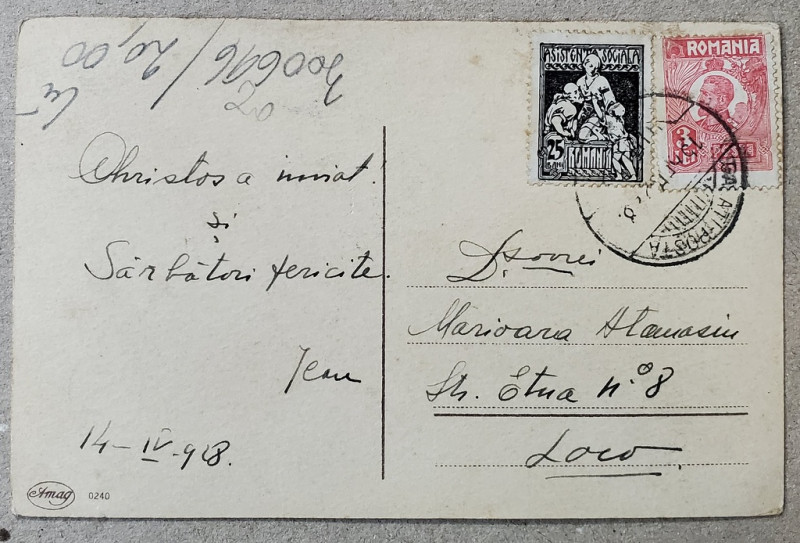 300696/20,00
Christos a inviat!
și
Sărbători fericite.
Jean
14-IV-928.
Amag
0240
ASISTENȚA SOCIALA
25
ROMANIA
ROMANIA
3
POSTA
D.șoarei
Marioara Atanasiu
Str. Etna nº 8
Loco.